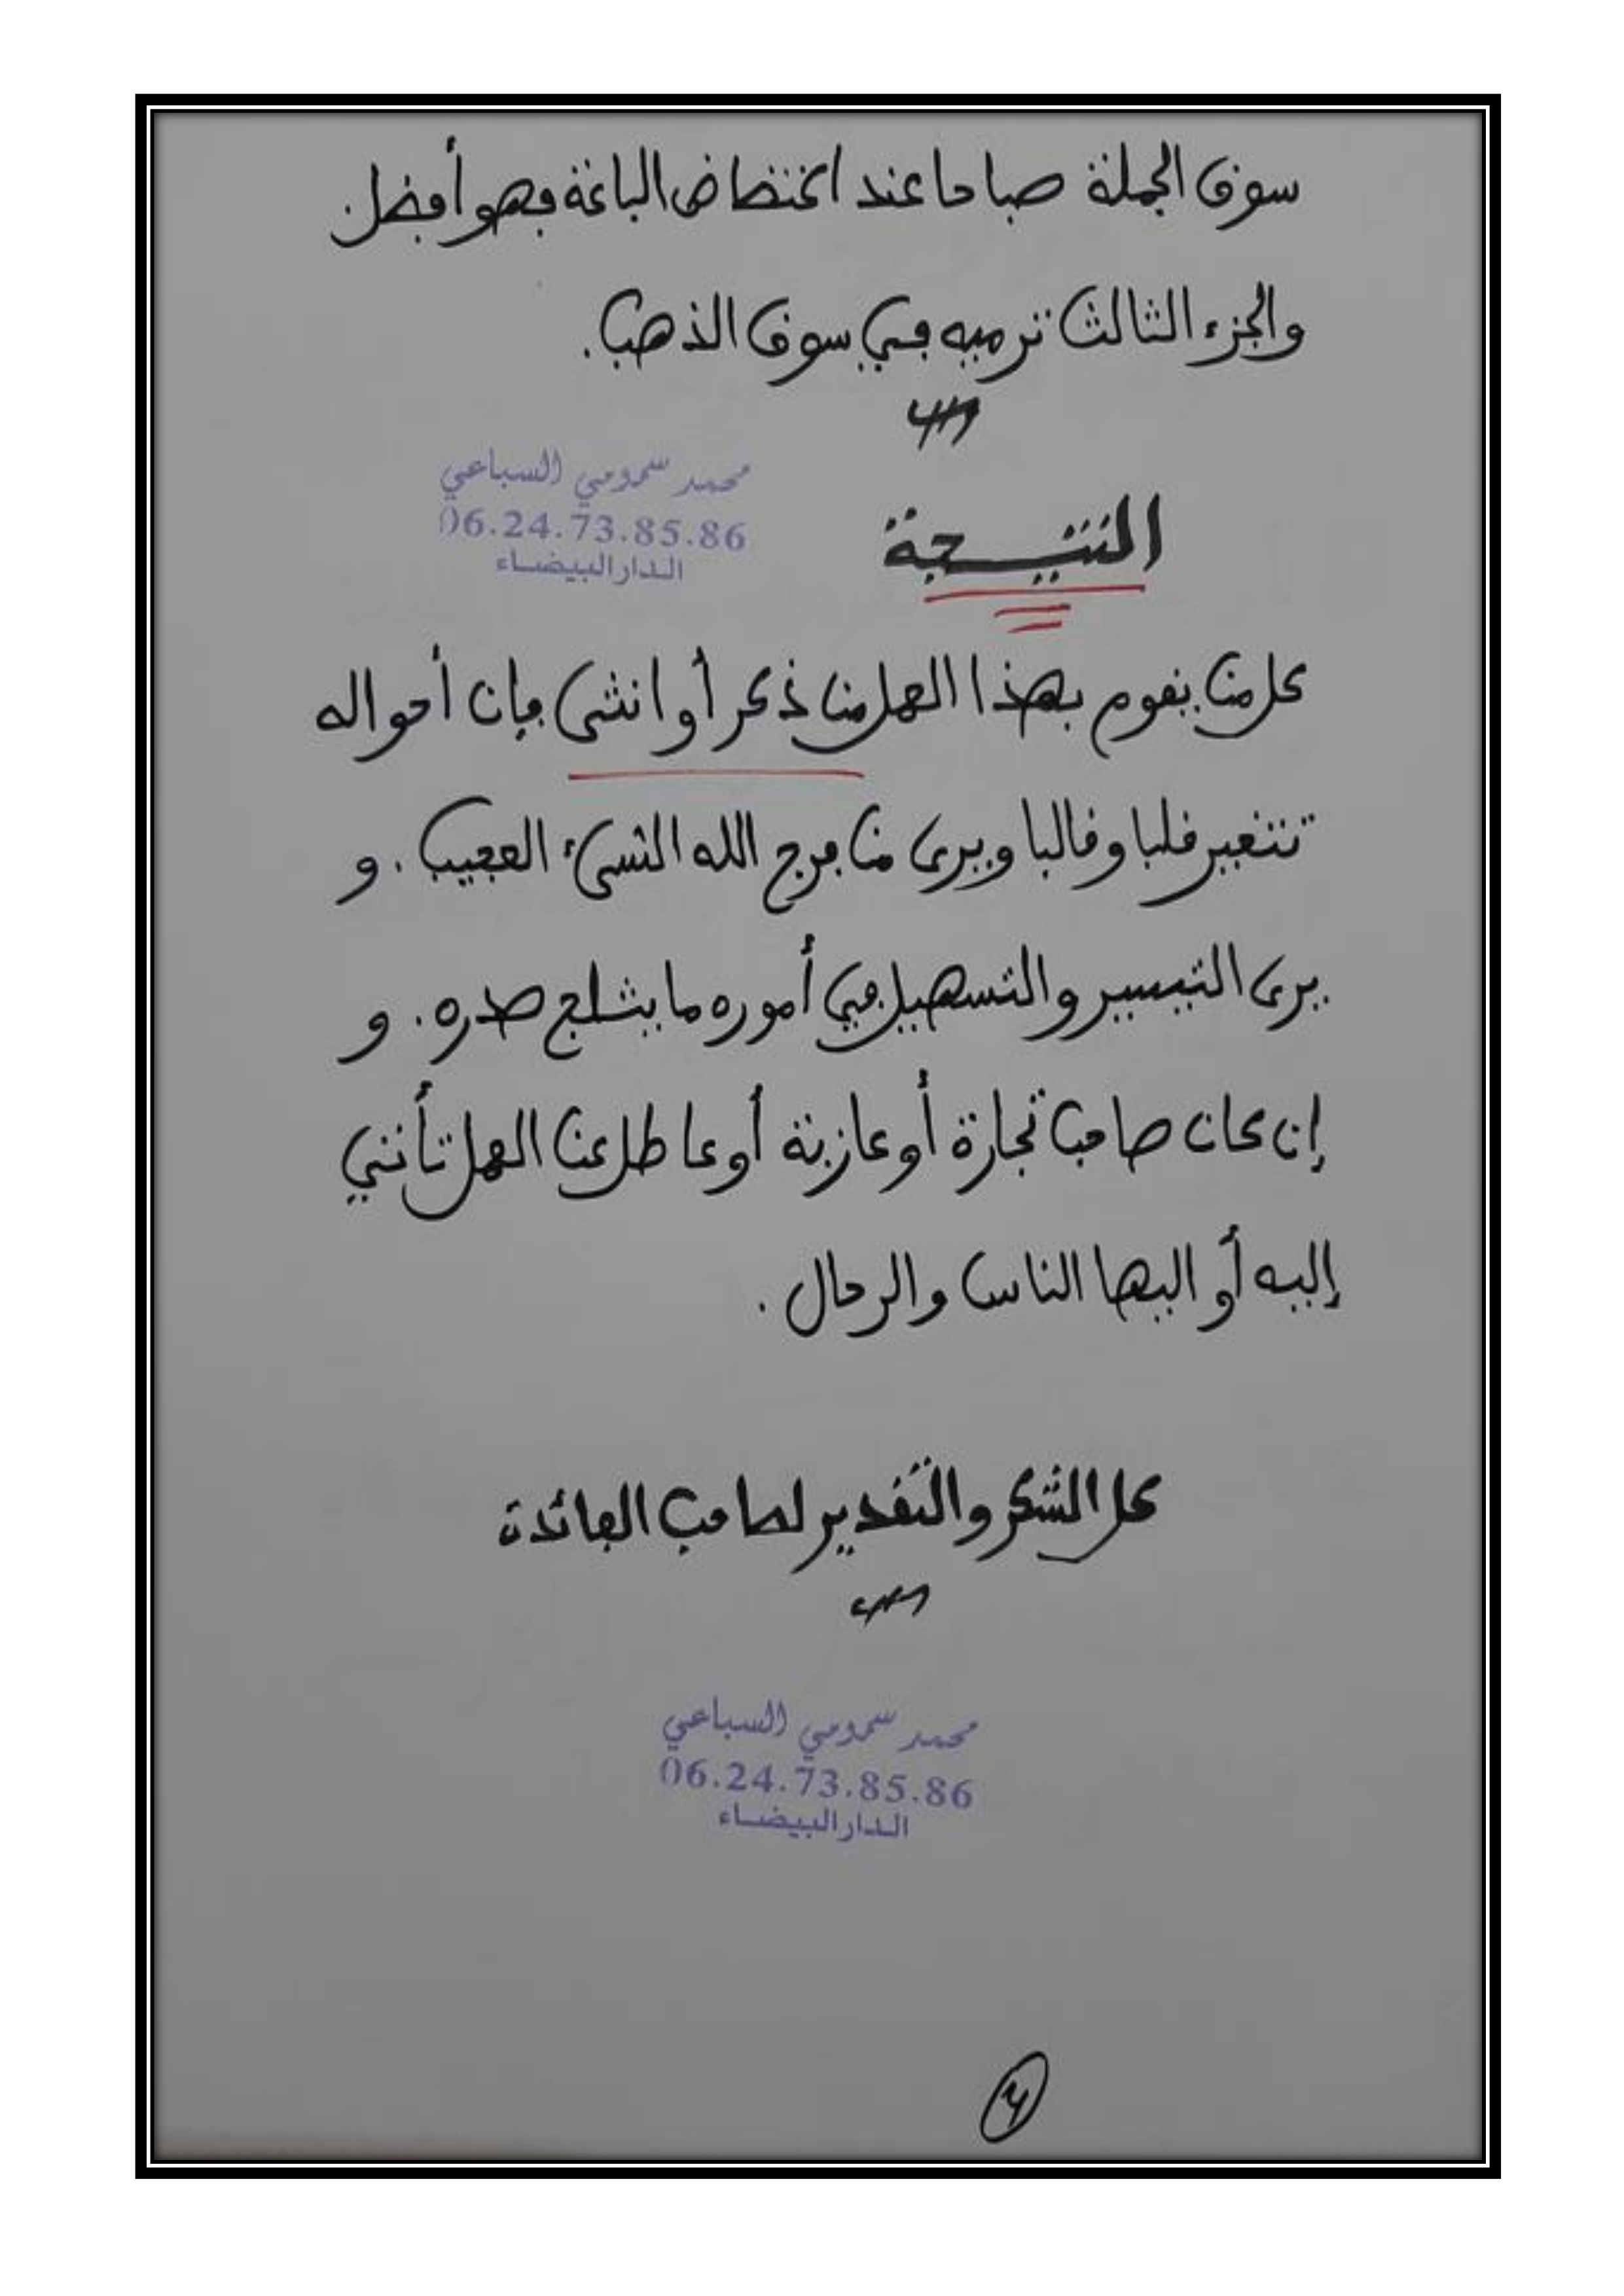 سوق الجملة صباحا عند اكتضاض الباعة فهو أفضل.
والجزء الثالث ترميه في سوق الذهب.
محمد سمومي السباعي
06.24.73.85.86
الدار البيضاء
النتيجة
كل من يقوم بهذا العمل من ذكر أو انثى فإن أحواله
تتغير قلبا وقالبا ويرى من فرج الله الشيء العجيب. و
يرى التيسير والتسهيل في أموره ما يثلج صدره. و
إن كان صاحب تجارة أو عازبة أو عاطل عن العمل تأتي
إليه أو اليها الناس والرحال.
كل الشكر والتقدير لصاحب الفائدة
محمد سمومي السباعي
06.24.73.85.86
الدار البيضاء